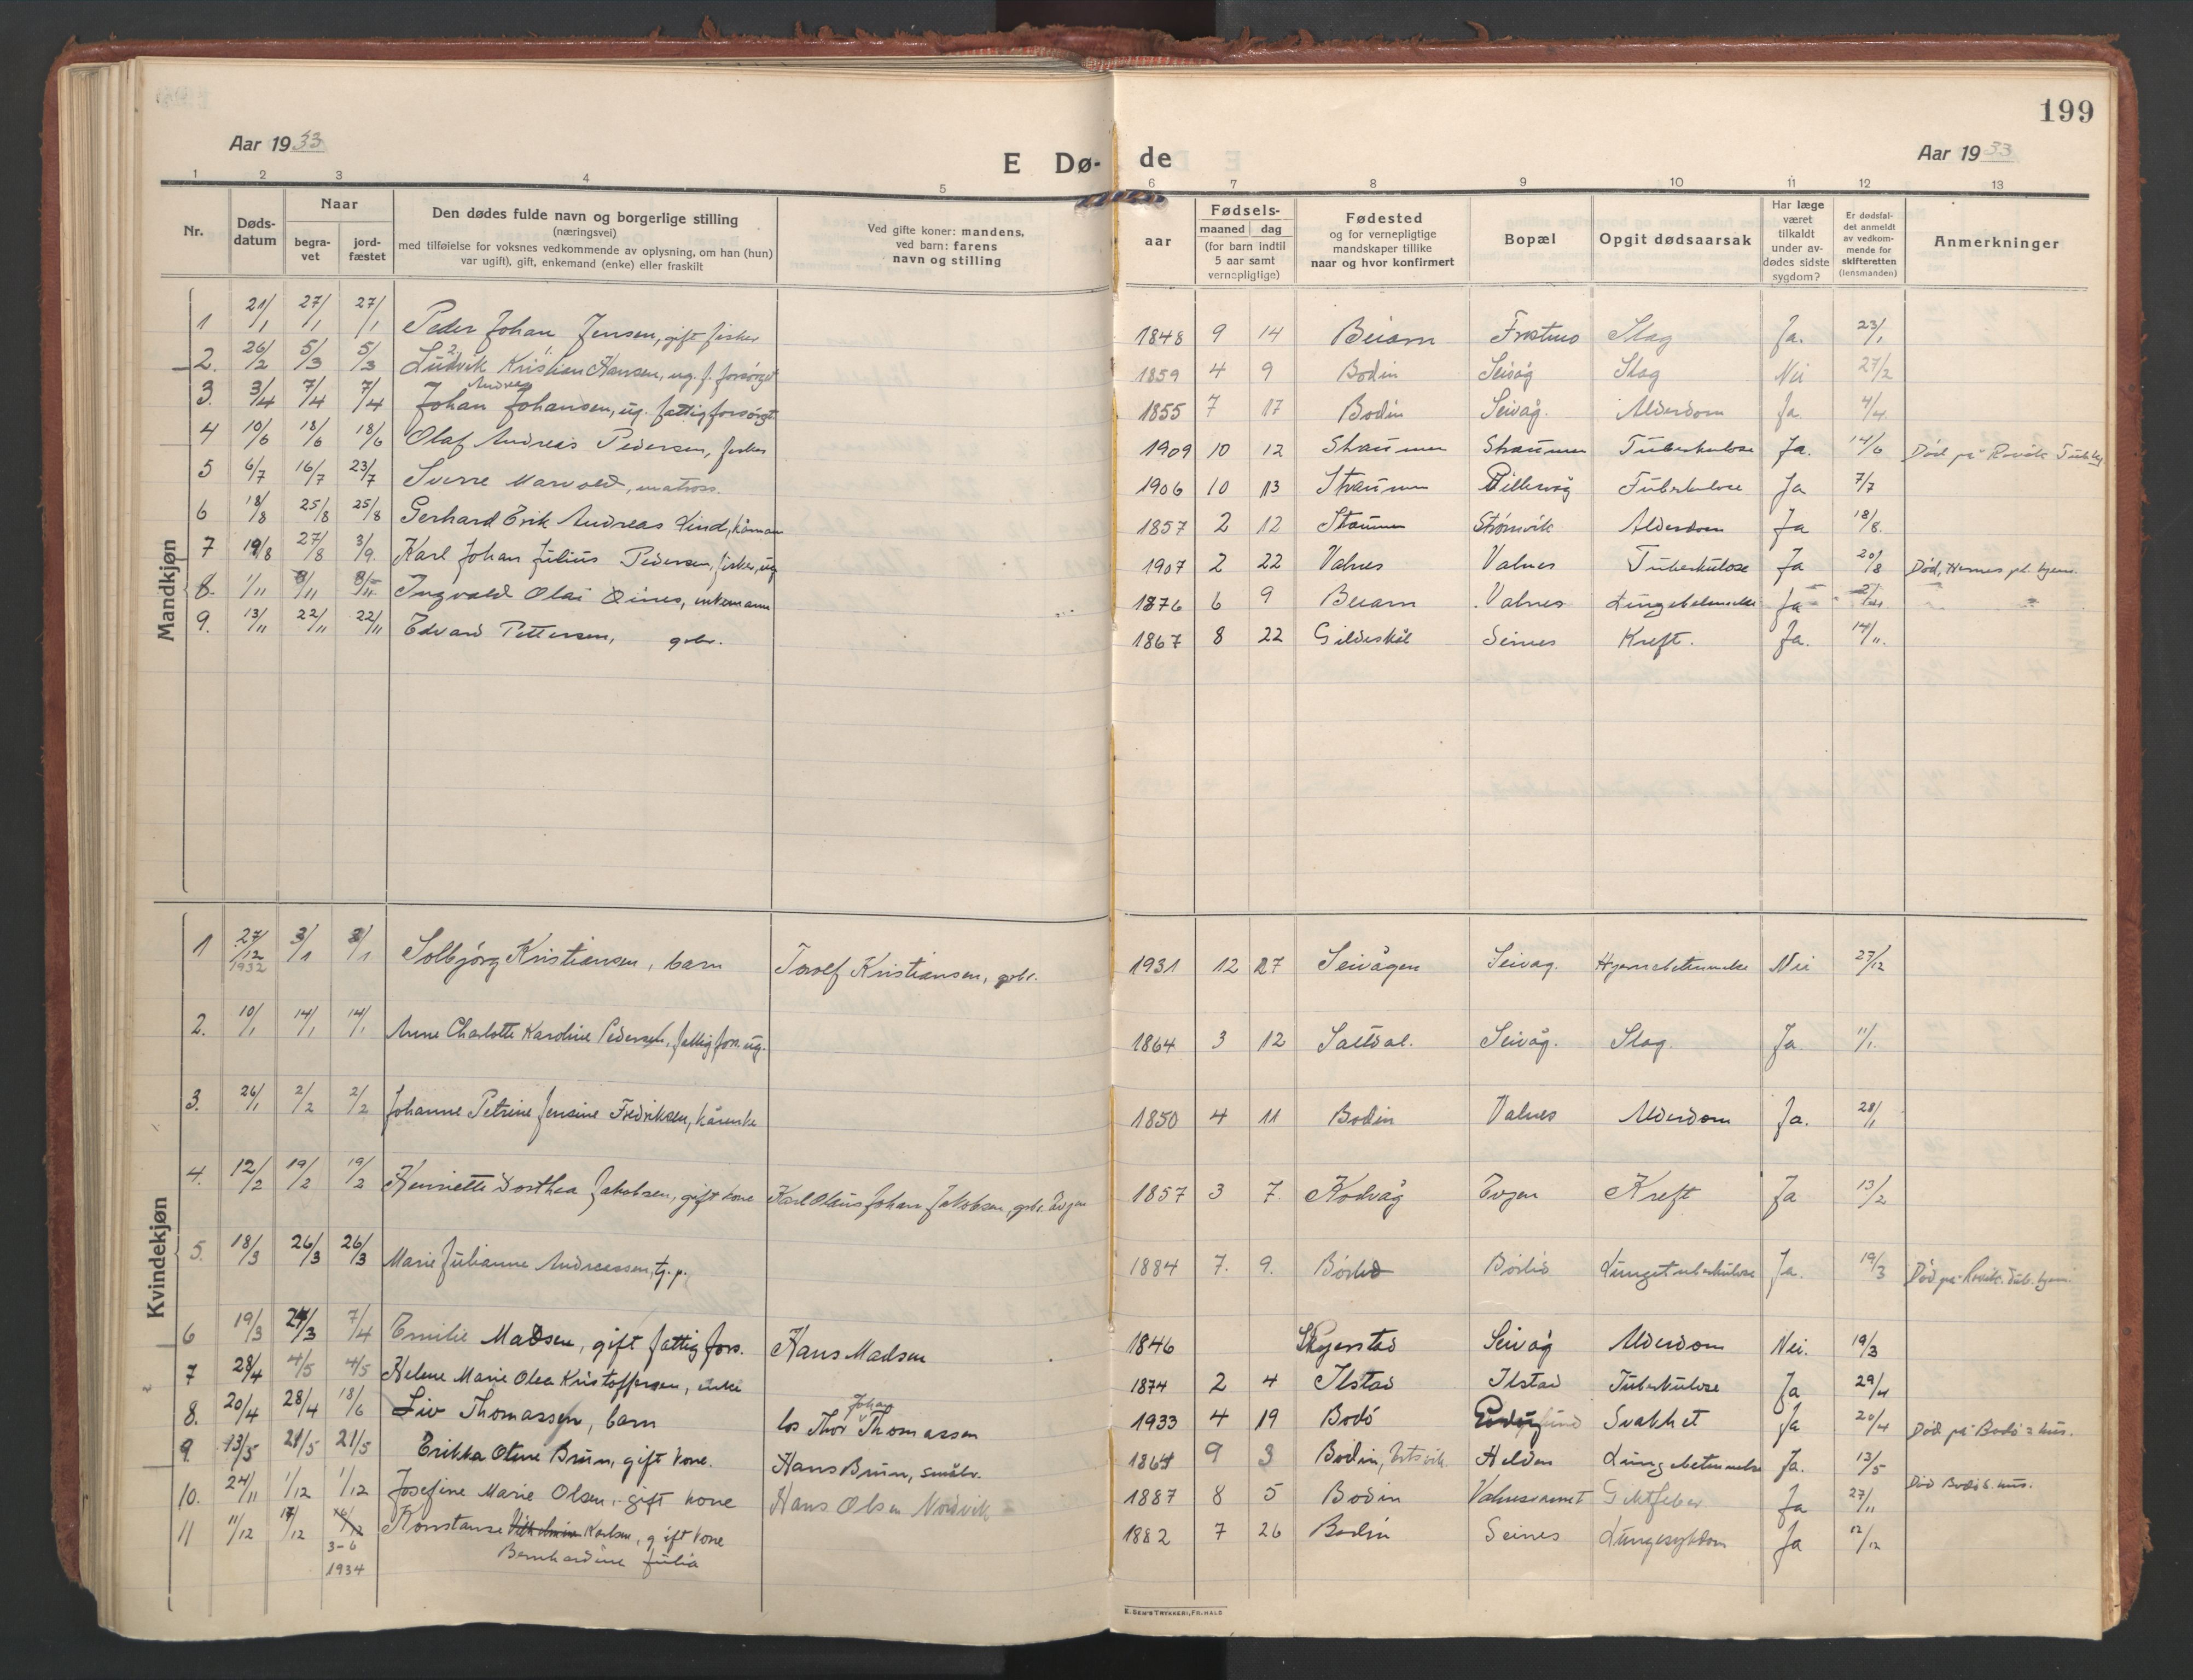 199
Aar 1933
E Dø- de
Aar 1933
1 2 3 4 5 6 7 8 9 10 11 12 13
Nr.
Døds-
datum
Naar
begra-
vet
jord-
fæstet
Den dødes fulde navn og borgerlige stilling
(næringsvei)
med tilføielse for voksnes vedkommende av oplysning, om han (hun)
var ugift), gift, enkemand (enke) eller fraskilt
Ved gifte koner: mandens,
ved barn: farens
navn og stilling
aar
Fødsels-
maaned dag
(for barn indtil
5 aar samt
vernepligtige)
Fødested
og for vernepligtige
mandskaper tillike
naar og hvor konfirmert
Bopæl
Opgit dødsaarsak
Har læge
været
tilkaldt
under av-
dødes sidste
sygdom?
Er dødsfal-
det anmeldt
av vedkom-
mende for
skifteretten
(lensmanden)
Anmerkninger
Mandkjøn
1 21/1 27/1 27/1 Peder Johan Jensen, gift fisker 1848 9 14 Beiarn Slag Ja. 23/1
2. 26/2 5/3 5/3 Ludvik Kristian Hansen, ug. f. forsørget 1859 4 9 Bodin Seivåg Slag Nei 27/2
Andreas
3. 3/4 7/4 7/4 Johan Johansen, ug. fattigforsørgt 1855 7 17 Bodin Seivåg. Alderdom Ja 4/4
4 10/6 18/6 18/6 Olaf Andreas Pedersen, fisker 1909 10 12 Straumen Straumen Tuberkulose Ja. 14/6 Død på Rovik Tub.hj.
5 6/7 16/7 23/7 Sverre Marvold, matros. 1906 10 13 Straumen Tuberkulose Ja 7/7
6 18/8 25/8 25/8 Gerhard Erik Andreas Lind, kårman 1857 2 12 Straumen Strømvik Alderdom Ja 18/8.
7 19/8 27/8 3/9. Karl Johan Julius Pedersen, fisker, ug 1907 2 22 Valnes Valnes Tuberkulose Ja 20/8 Død, Hernes pl. hjem.
8. 1/11 8/11 8/11 Ingvald Olai Øines, enkemann 1876 6 9 Beiarn Valnes Lungebetennelse Ja
9. 13/11 22/11 22/11 Edvard Pettersen, gbr. 1867 8 22 Gildeskål Seines Kreft. Ja. 14/11.
Kvindekjøn
1 27/12 1932 3/1 3/1 Solbjørg Kristiansen, barn Torolf Kristiansen, gbr. 1931 12 27 Seivågen Seivag. Hjernebetennelse Nei 27/12
2. 10/1 14/1 14/1 Anne Charlotte Karoline Pedersen, fattig fors. ug. 1864 3 12 Saltdal. Seivåg. Slag. Ja 11/1.
3. 26/1 2/2 2/2 Johanne Petrine Jensine Fredriksen, kårenke 1850 4 11 Bodin Valnes Alderdom Ja. 28/1
4. 12/2 19/2 19/2 Henriette Dorthea Jakobsen, gift kone Karl Olaus Johan Jakobsen, gbr. Evjen 1857 3 7. Kodvåg Evjen Kreft Ja 13/2
5. 18/3 26/3 26/3 Marie Julianne Andreassen, tj.p. 1884 7. 9. Børlid Børlid Lungetuberkulose Ja. 19/3 Død på Rovik. Tub. hjem.
6 19/3 24/3 7/4 Emilie Madsen, gift fattig fors. Hans Madsen 1846 Skjerstad Seivåg Alderdom Nei. 19/3
7 28/4 4/5 4/5 Helene Marie Olea Kristoffersen, enke 1874 2 4 Ilstad Ilstad Tuberkulose Ja 29/4
Johan
8. 20/4 28/4 18/6 Liv Thomassen, barn los Thor Thomassen 1933 4 19 Bodø Svakhet Ja 20/4 Død på Bodø s.hus.
9. 13/5 21/5 21/5 Erikka Oline Brun, gift kone. Hans Brun, småbr. 1864 9 3 Bodin, Ertsvik. Helden Lungebetennelse Ja. 13/5
10. 24/11 1/12 1/12 Josefine Marie Olsen, gift kone Hans Olsen Nordvik 1887 8 5 Bodin Valnesvannet Giktfeber Ja 27/11 Død Bodø s. hus.
11 11/12 17/12 3-6 1934 Konstanse Karlsen, gift kone 1882 7 26 Bodin Seines Lungesykdom Ja 12/12
Bernhardine Julia
E. SEM'S TRYKKERI, FR.HALD